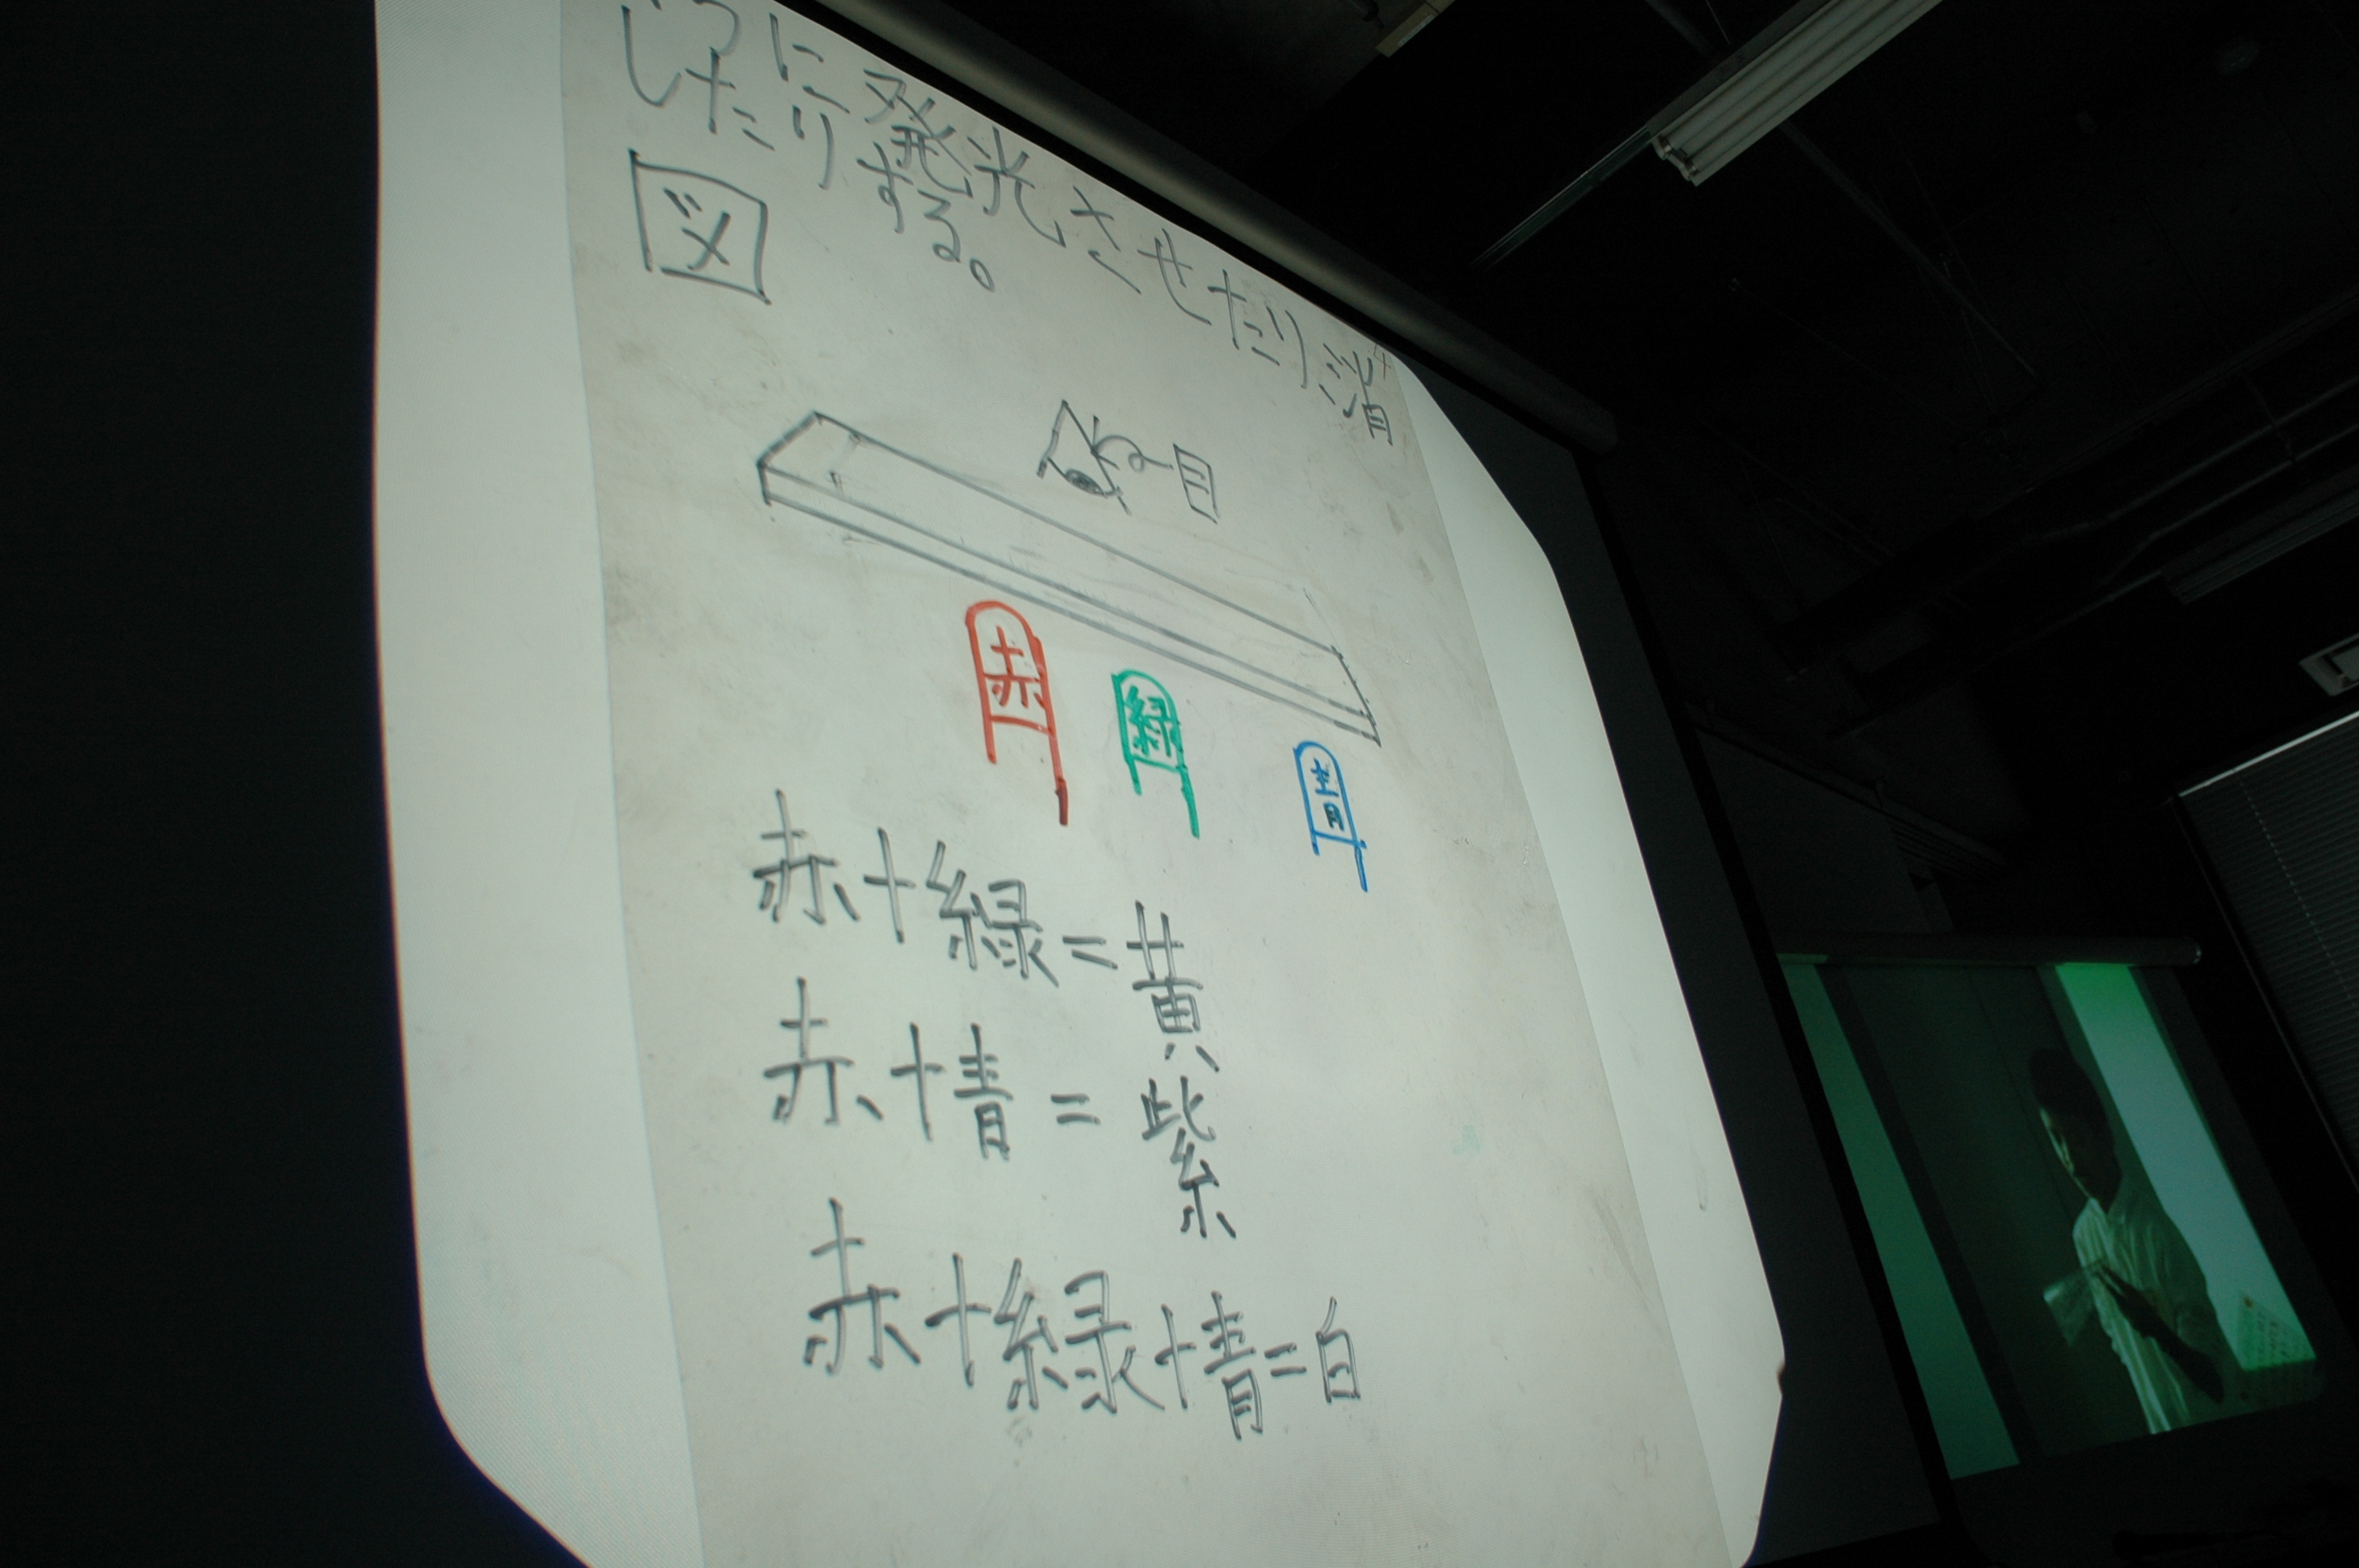 つに発光させたり消
したりする。
図
目
赤
緑
青
赤+緑=黄
赤+青=紫
赤+緑+青=白